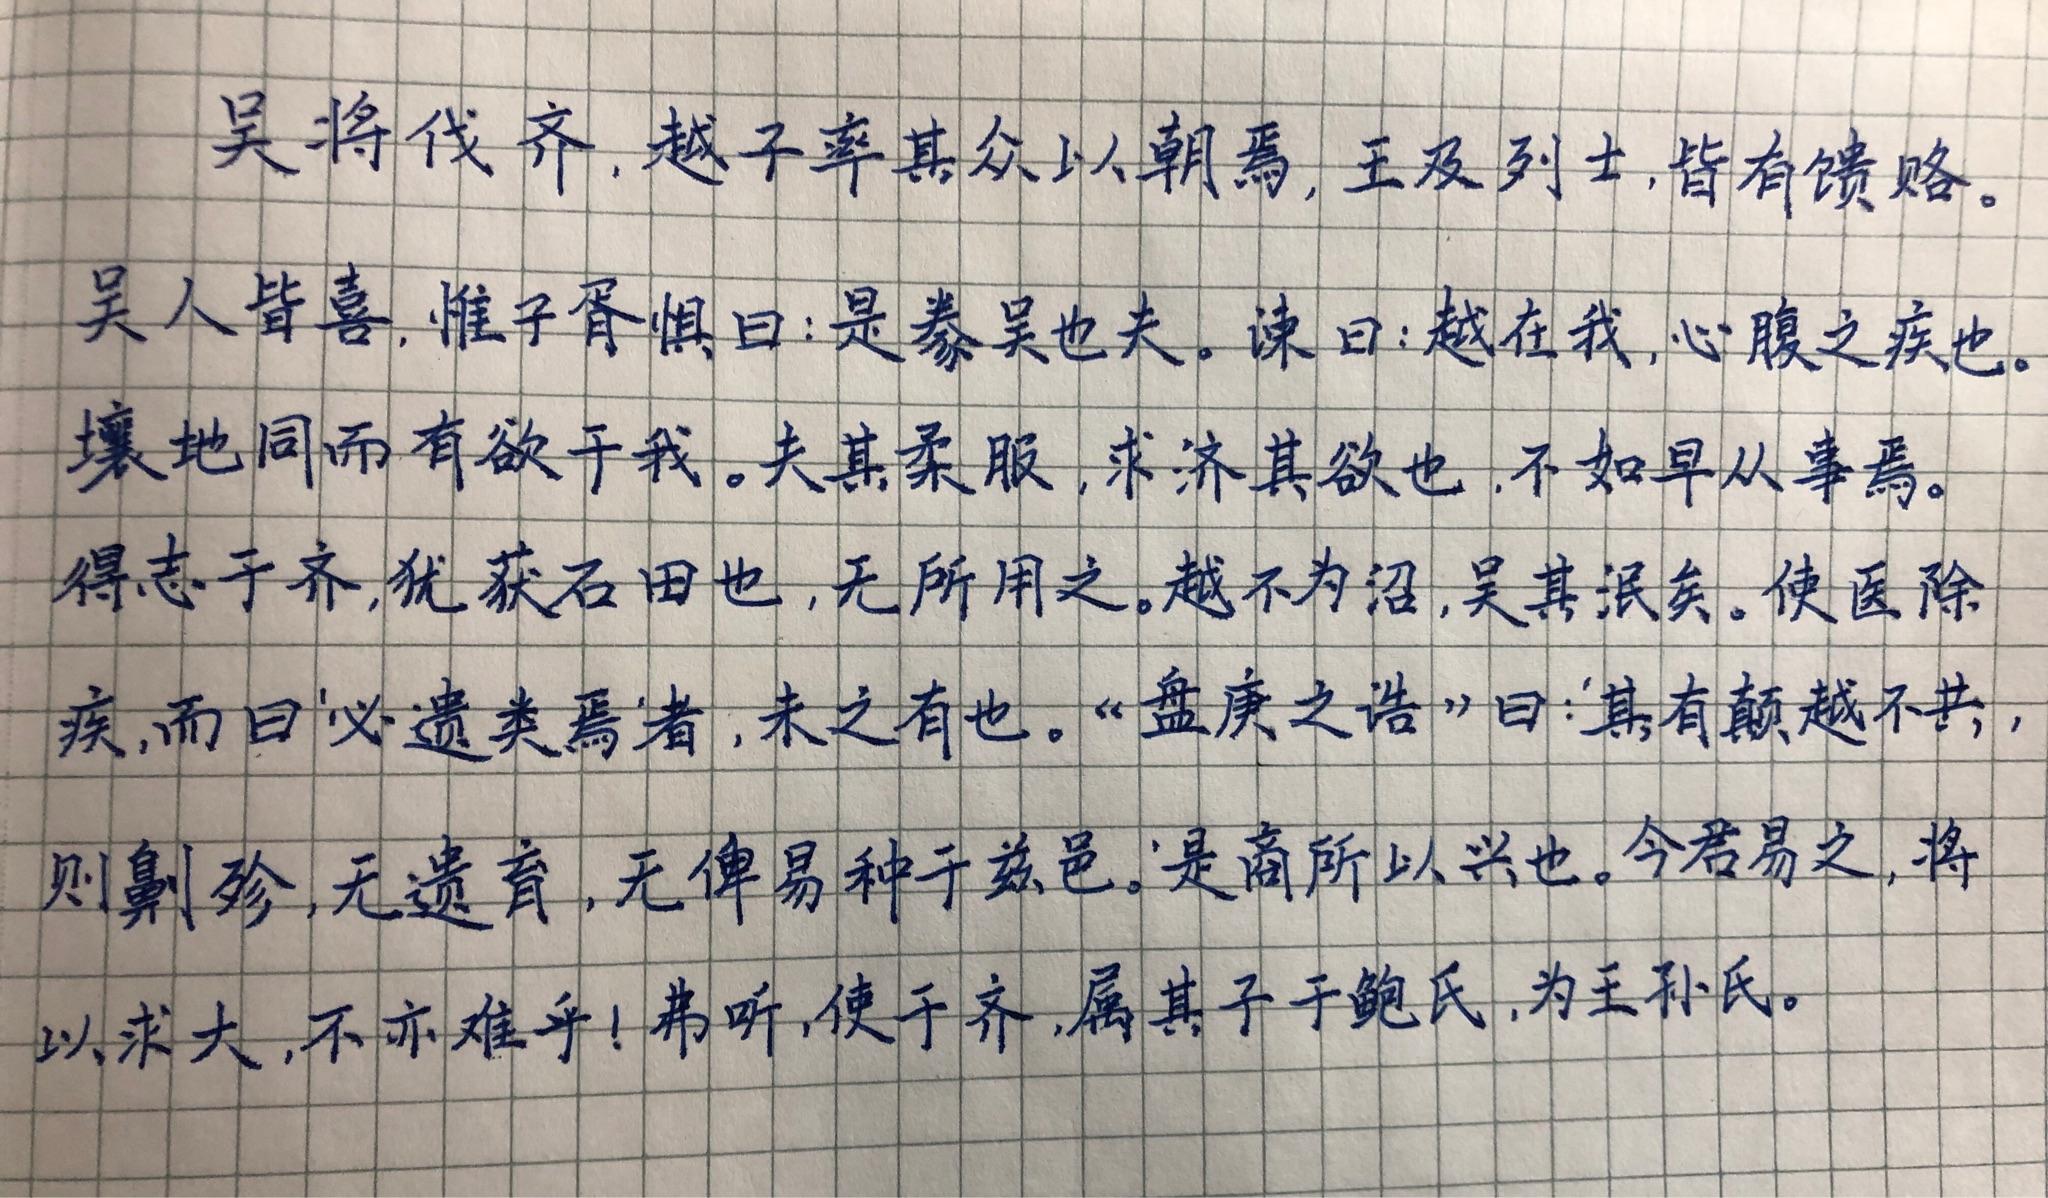 吴将伐齐,越子率其众以朝焉,王及列士,皆有馈赂。
吴人皆喜,惟子胥惧曰:是豢吴也夫。谏曰:越在我,心腹之疾也。
壤地同而有欲于我。夫其柔服,求济其欲也,不如早从事焉。
得志于齐,犹获石田也,无所用之。越不为沼,吴其泯矣。使医除
疾,而曰‘必遗类焉’者,未之有也。“盘庚之诰”曰:‘其有颠越不共,
则劓殄,无遗育,无俾易种于兹邑。’是商所以兴也。今君易之,将
以求大,不亦难乎!弗听,使于齐,属其子于鲍氏,为王孙氏。